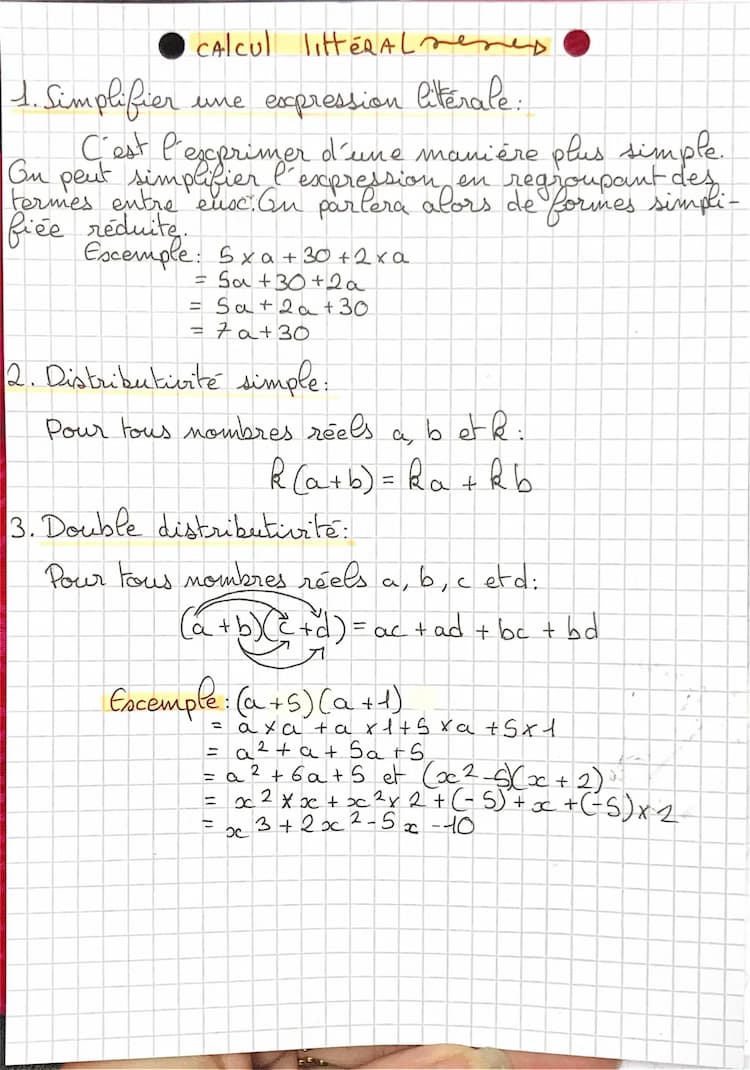 CAlCUl littéRAL
1. Simplifier une expression litérale:
C'est l'exprimer d'une manière plus simple.
On peut simplifier l'expression en regroupant des
termes entre eux. On parlera alors de formes simpli-
fiée réduite.
Exemple: 5 x a + 30 + 2 x a
= 5a + 30 + 2a
= 5a + 2a + 30
= 7a + 30
2. Distributivité simple:
Pour tous nombres réels a, b et k:
k(a+b) = ka + kb
3. Double distributivité:
Pour tous nombres réels a, b, c et d:
(a+b)(c+d) = ac + ad + bc + bd
Exemple: (a+5)(a+1)
= a x a + a x 1 + 5 x a + 5 x 1
= a² + a + 5a + 5
= a² + 6a + 5 et (x² - 5)(x + 2)
= x² x x + x² x 2 + (-5) + x + (-5) x 2
= x³ + 2x² - 5x - 10